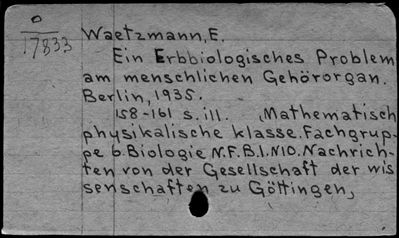 O
17833
Waetzmann, E.
Ein Erbbiologisches Problem
am menschlichen Gehörorgan.
Berlin, 1935.
158-161 s. ill. (Mathematisch
physikalische klasse. Fachgrup-
pe 6. Biologie N.F. B.1. N10. Nachrich-
ten von der Gesellschaft der wis
senschaften zu Göttingen,